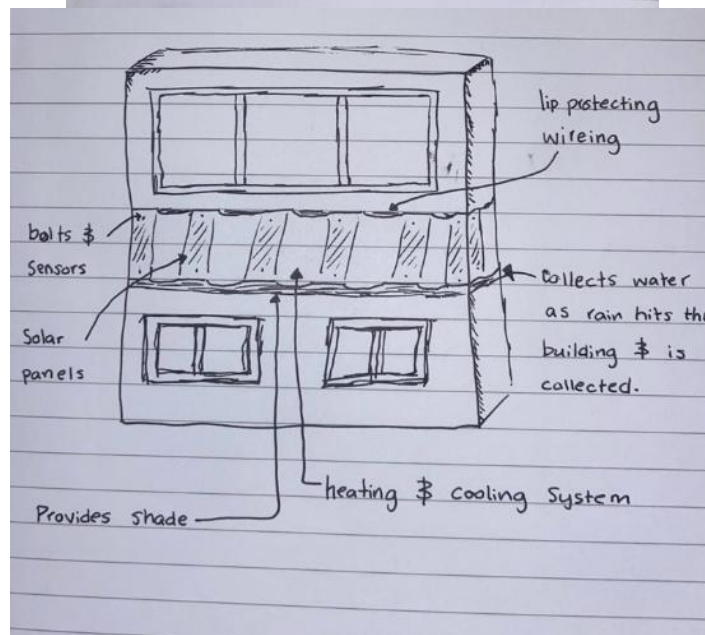 lip protecting
wireing
bolts &
Sensors
Solar
panels
Collects water
as rain hits the
building & is
collected.
heating & cooling System
Provides shade